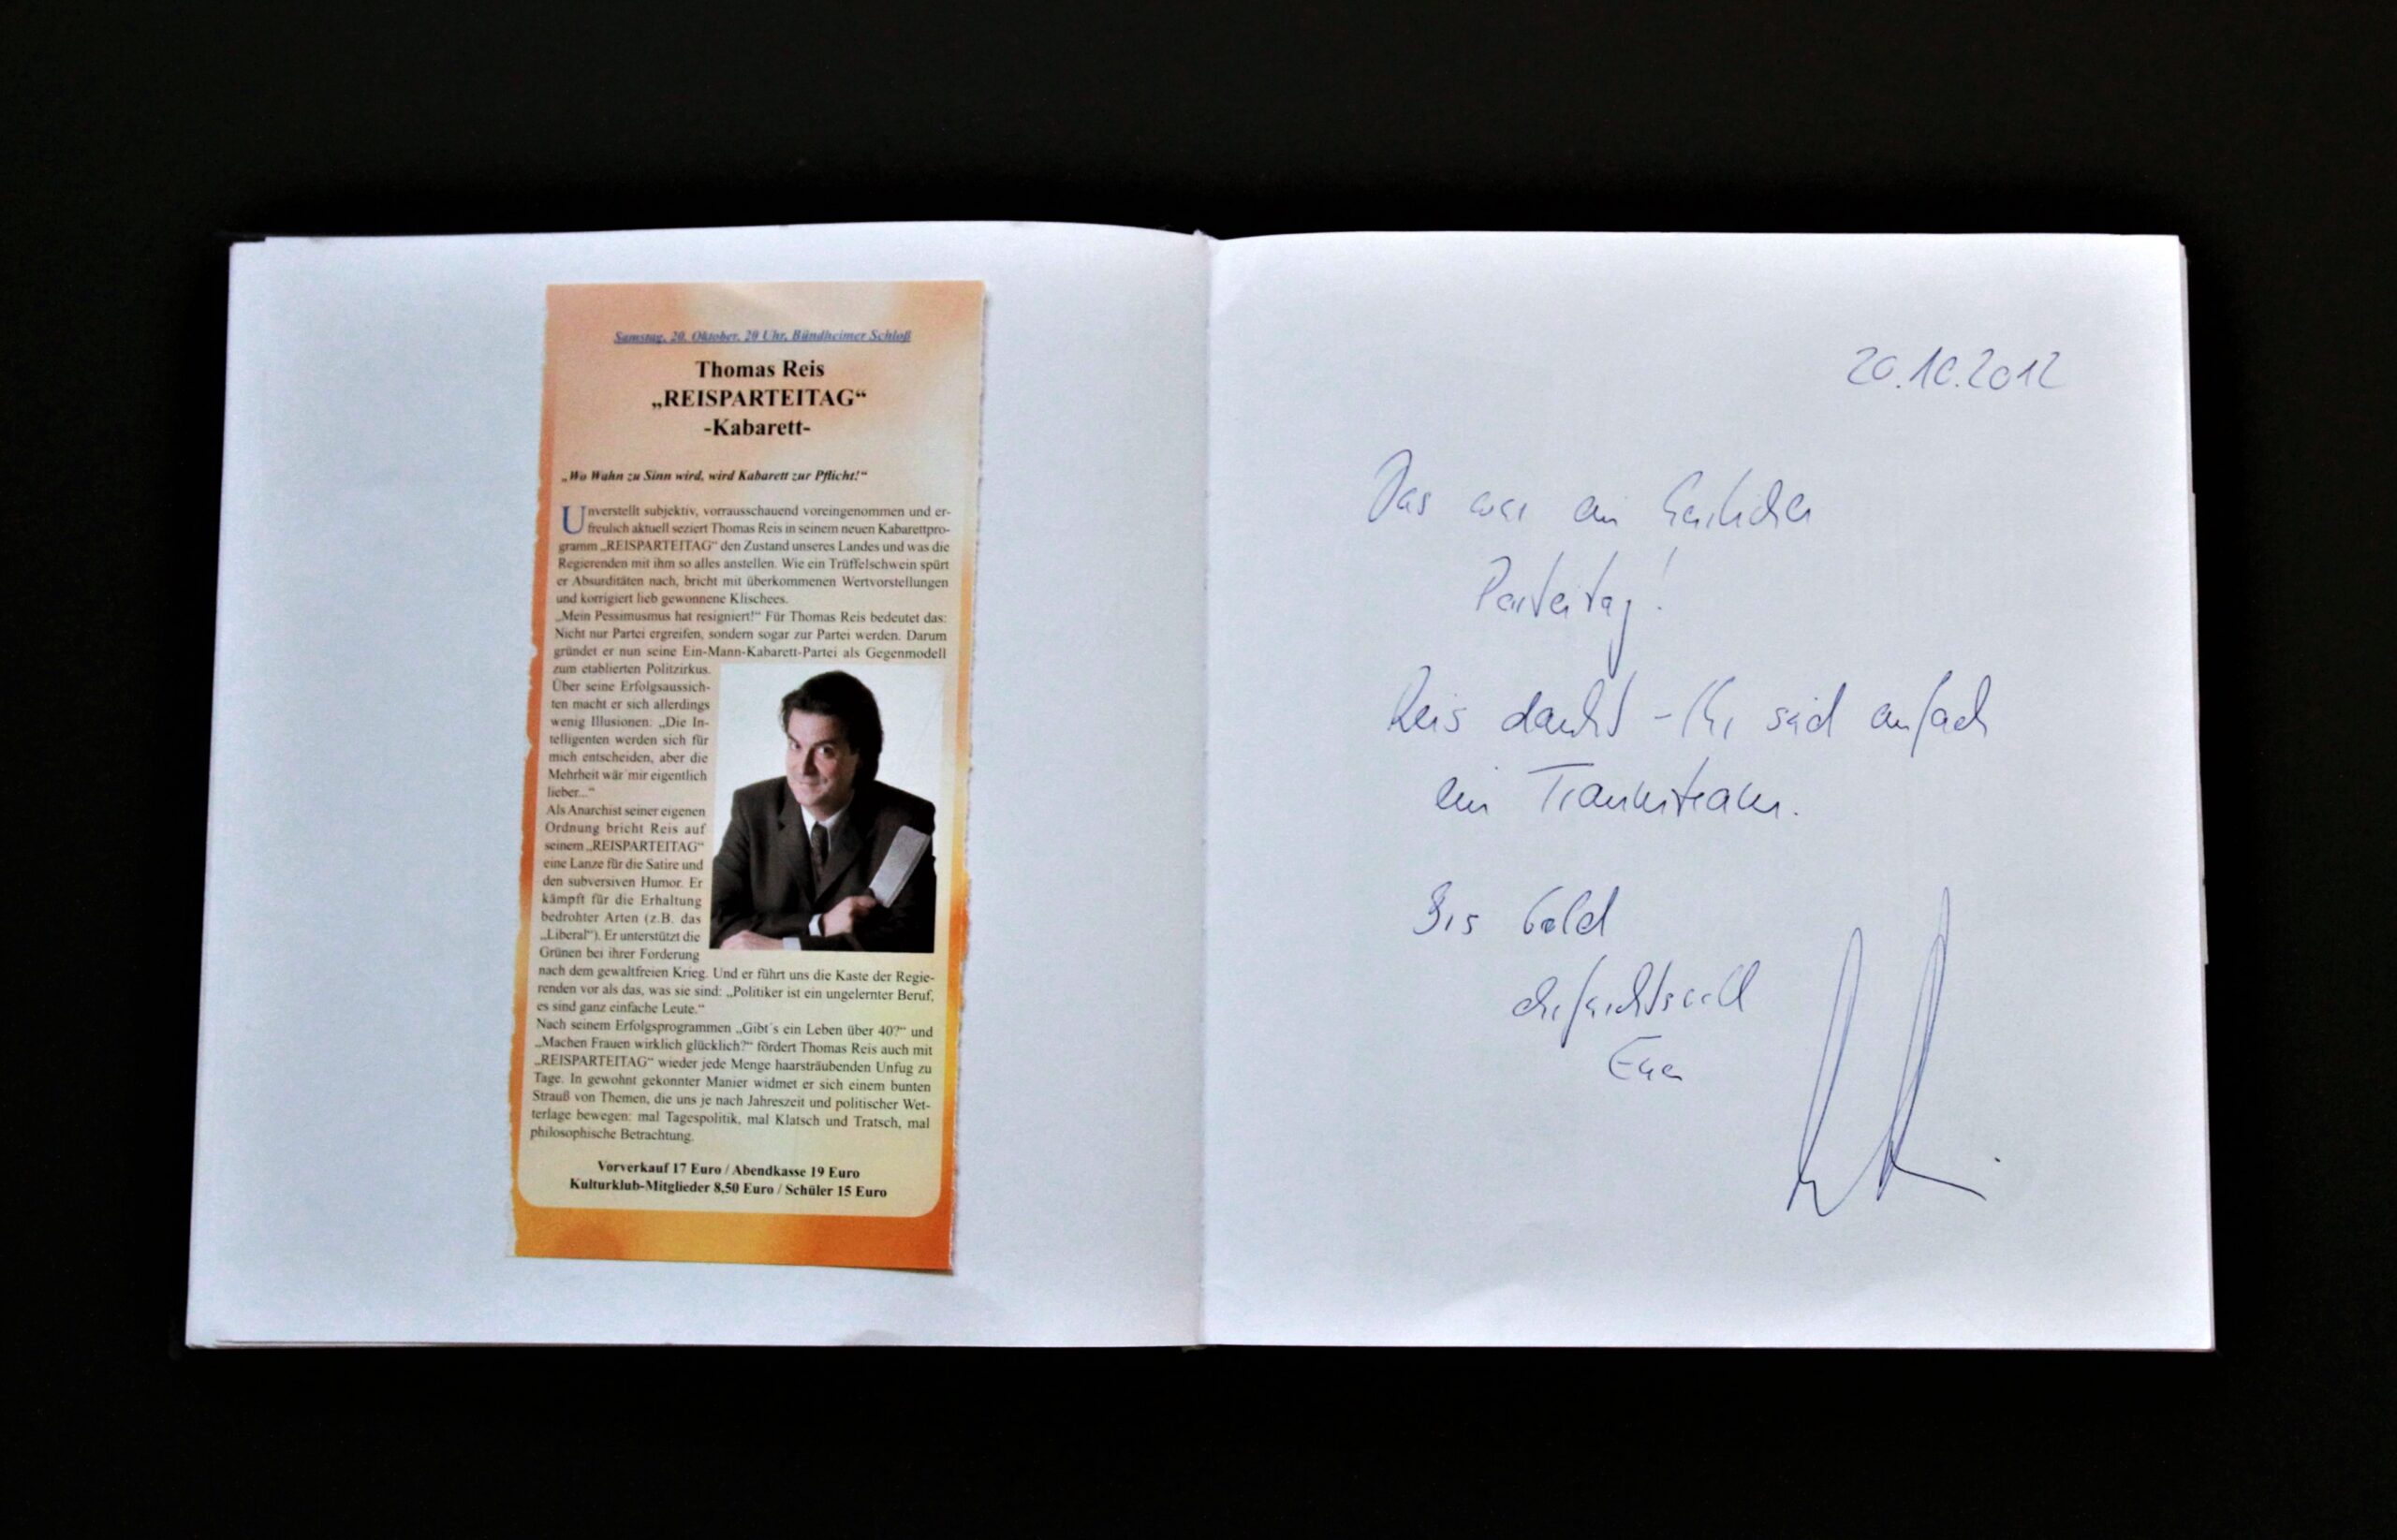 Samstag, 20. Oktober, 20 Uhr, Bündheimer Schloß
Thomas Reis
„REISPARTEITAG“
-Kabarett-
„Wo Wahn zu Sinn wird, wird Kabarett zur Pflicht!“
Unverstellt subjektiv, vorrausschauend voreingenommen und er-
freulich aktuell seziert Thomas Reis in seinem neuen Kabarettpro-
gramm „REISPARTEITAG“ den Zustand unseres Landes und was die
Regierenden mit ihm so alles anstellen. Wie ein Trüffelschwein spürt
er Absurditäten nach, bricht mit überkommenen Wertvorstellungen
und korrigiert lieb gewonnene Klischees.
„Mein Pessimusmus hat resigniert!“ Für Thomas Reis bedeutet das:
Nicht nur Partei ergreifen, sondern sogar zur Partei werden. Darum
gründet er nun seine Ein-Mann-Kabarett-Partei als Gegenmodell
zum etablierten Politzirkus.
Über seine Erfolgsaussich-
ten macht er sich allerdings
wenig Illusionen: „Die In-
telligenten werden sich für
mich entscheiden, aber die
Mehrheit wär´mir eigentlich
lieber...“
Als Anarchist seiner eigenen
Ordnung bricht Reis auf
seinem „REISPARTEITAG“
eine Lanze für die Satire und
den subversiven Humor. Er
kämpft für die Erhaltung
bedrohter Arten (z.B. das
„Liberal“). Er unterstützt die
Grünen bei ihrer Forderung
nach dem gewaltfreien Krieg. Und er führt uns die Kaste der Regie-
renden vor als das, was sie sind: „Politiker ist ein ungelernter Beruf,
es sind ganz einfache Leute.“
Nach seinem Erfolgsprogrammen „Gibt´s ein Leben über 40?“ und
„Machen Frauen wirklich glücklich?“ fördert Thomas Reis auch mit
„REISPARTEITAG“ wieder jede Menge haarsträubenden Unfug zu
Tage. In gewohnt gekonnter Manier widmet er sich einem bunten
Strauß von Themen, die uns je nach Jahreszeit und politischer Wet-
terlage bewegen: mal Tagespolitik, mal Klatsch und Tratsch, mal
philosophische Betrachtung.
Vorverkauf 17 Euro / Abendkasse 19 Euro
Kulturklub-Mitglieder 8,50 Euro / Schüler 15 Euro
20.10.2012
Das war ein herrlicher
Parteitag!
Reis dankt - Ihr seid einfach
ein Traumteam.
Bis bald
ehrfurchtsvoll
Euer